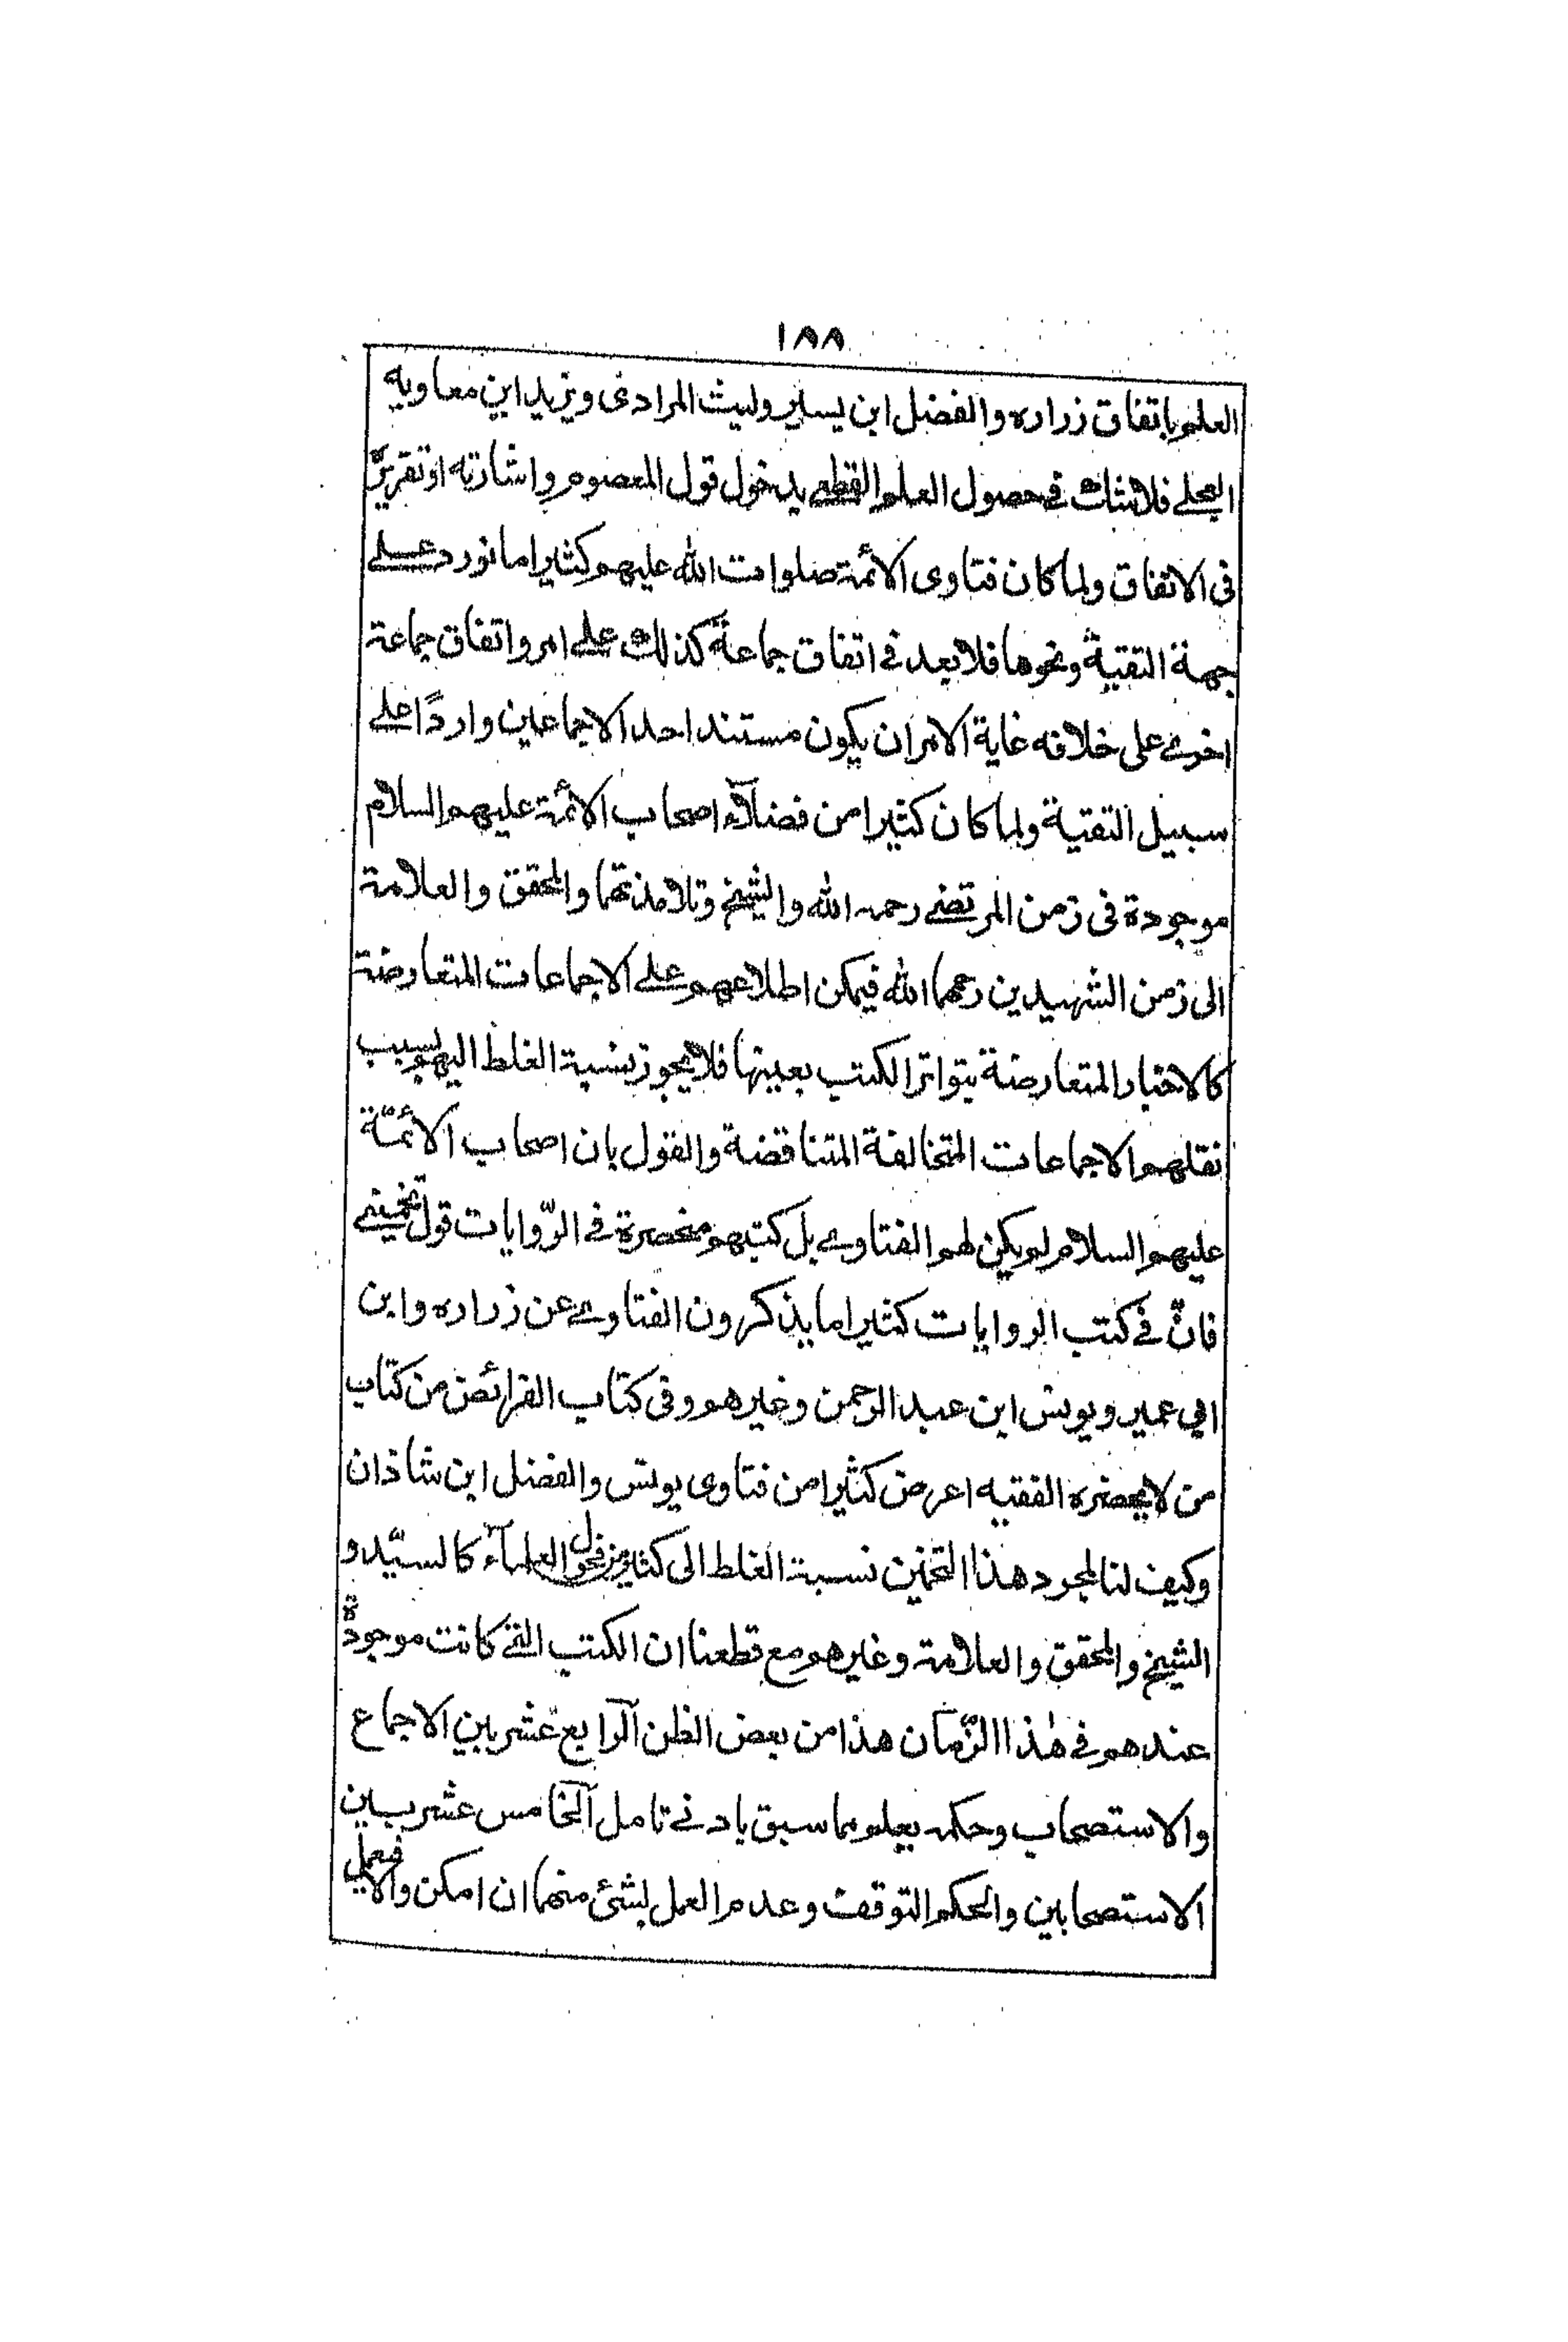 ١٨٨
العلم باتفاق زراره والفضل ابن يسير وليث المرادى ويزيد ابن معاويه
العجلے فلا شك فے حصول العلم القطعے بدخول قول المعصوم واشارته اوتقريرہ
فى الاتفاق ولما كان فتاوى الائمة صلوات الله عليهم كثيرا ما تورد علے
جهة التقية ونحوها فلا بعد فے اتفاق جماعة كذلك علے امر واتفاق جماعة
اخرے على خلافه غاية الامر ان يكون مستند احد الاجماعين واردًا علے
سبيل التقية ولما كان كثيرا من فضلآء اصحاب الائمة عليهم السلام
موجودة فى زمن المرتضے رحمه الله والشيخ وتلامذتهما والمحقق والعلامة
الى زمن الشهيدين رحمهما الله فيمكن اطلاعهم علے الاجماعات المتعارضة
كالاخبار المتعارضة بتواتر الكتب بعينها فلا يجوز نسبة الغلط اليهم بسبب
نقلهم الاجماعات المتخالفة المتناقضة والقول بان اصحاب الائمّة
عليهم السلام لم يكن لهم الفتاوے بل كتبهم منحصرة فے الرّوايات قول تخمينے
فانّ فے كتب الروايات كثيرا ما يذكرون الفتاوے عن زراره وابن
ابي عمير ويونس ابن عبد الرحمن وغيرهم وفى كتاب الفرائض من كتاب
من لا يحضره الفقيه اعرض كثيرا من فتاوى يونس والفضل ابن شاذان
وكيف لنا لمجرد هذا التخمين نسبة الغلط الى كثير من فحول العلمآء كالسيّد و
الشيخ والمحقق والعلامة وغيرهم مع قطعنا ان الكتب التے كانت موجودة
عندهم فے هٰذا الزّمان هذا من بعض الظن الرابع عشر بين الاجماع
والاستصحاب وحكمه يعلم مما سبق بادنے تامل الخامس عشر بين
الاستصحابين والحكم التوقف وعدم العمل بشئ منهما ان امكن والا فيعمل